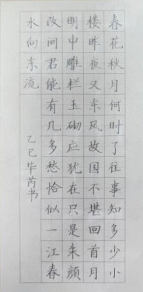 春花秋月何时了往事知多少小
楼昨夜又东风故国不堪回首月
明中雕栏玉砌应犹在只是朱颜
改问君能有几多愁恰似一江春
水向东流
乙巳毕芮书